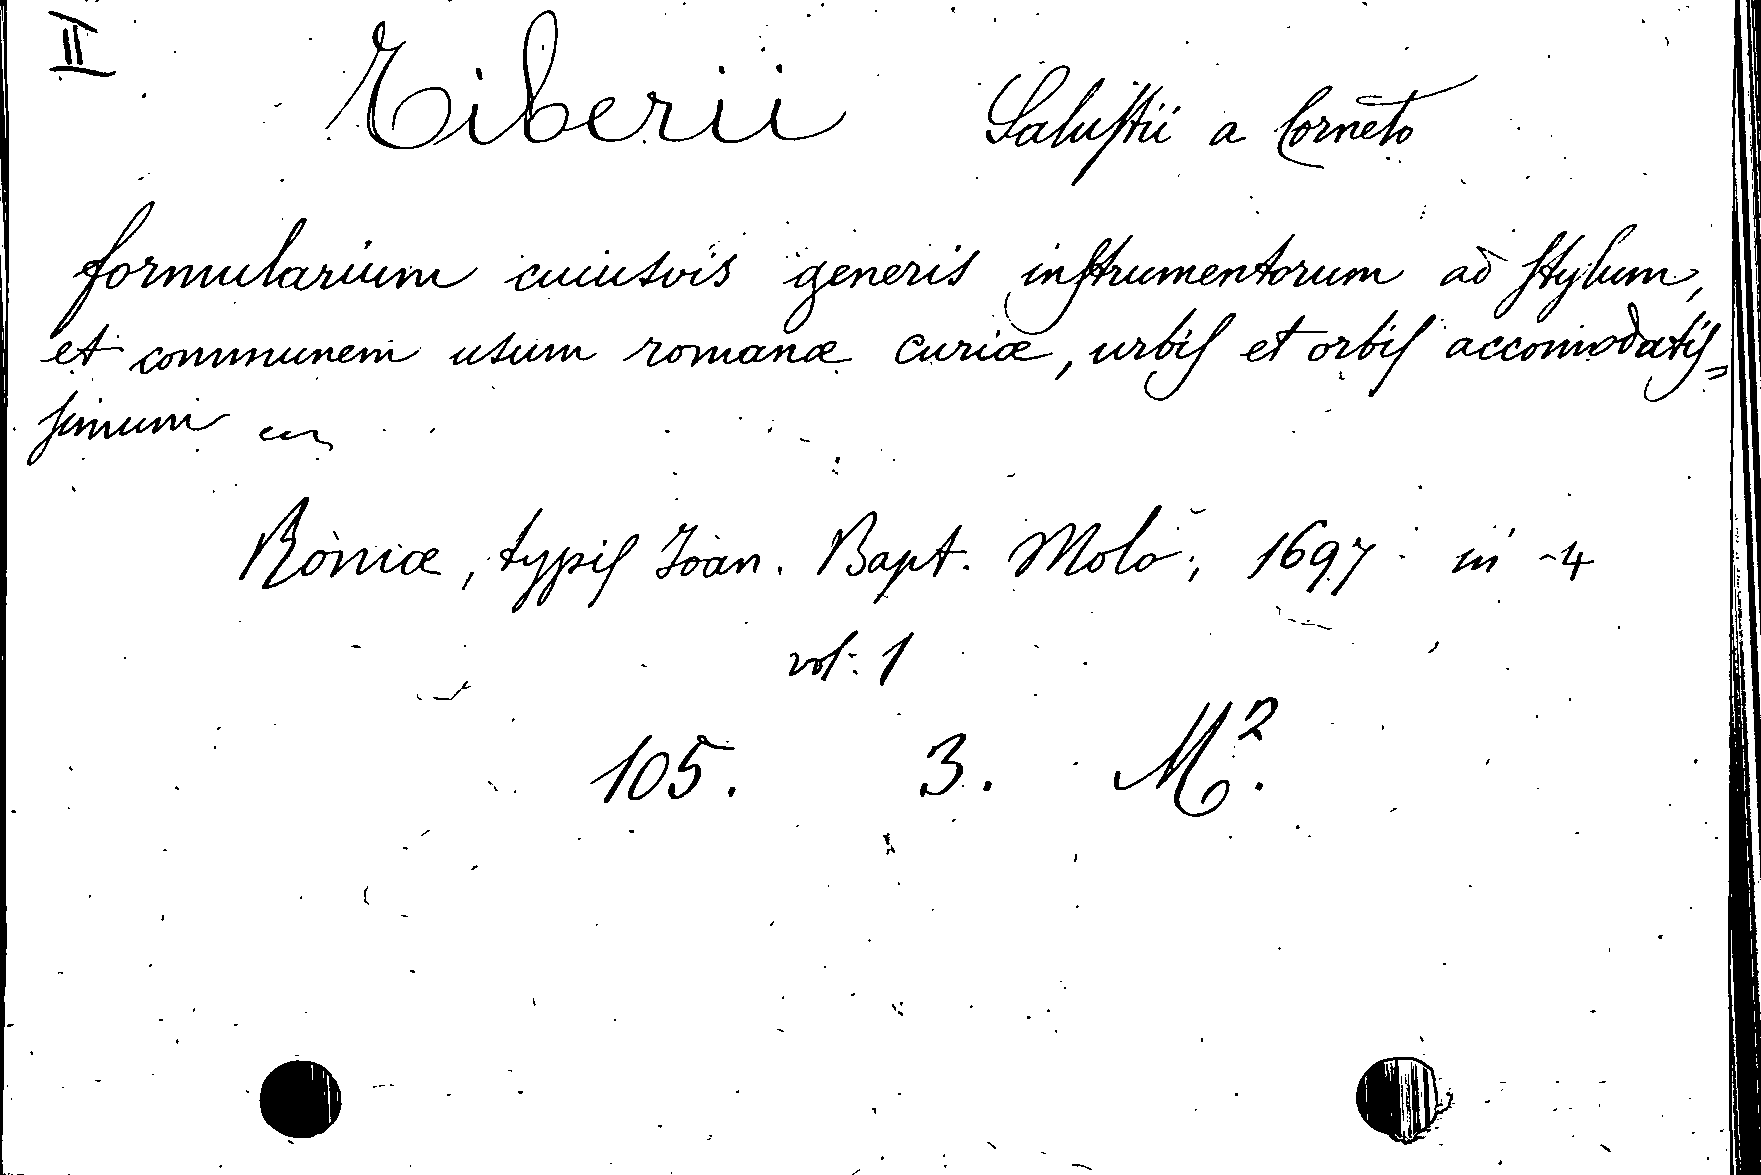 II
Tiberii Salustii a Corneto
formularium cuiusvis generis instrumentorum ad stylum,
et communem usum romanæ curiæ, urbis et orbis accomodatis=
simum
Romæ, typis Joan. Bapt. Molo, 1697 in -4
vol. 1
105. 3. M².